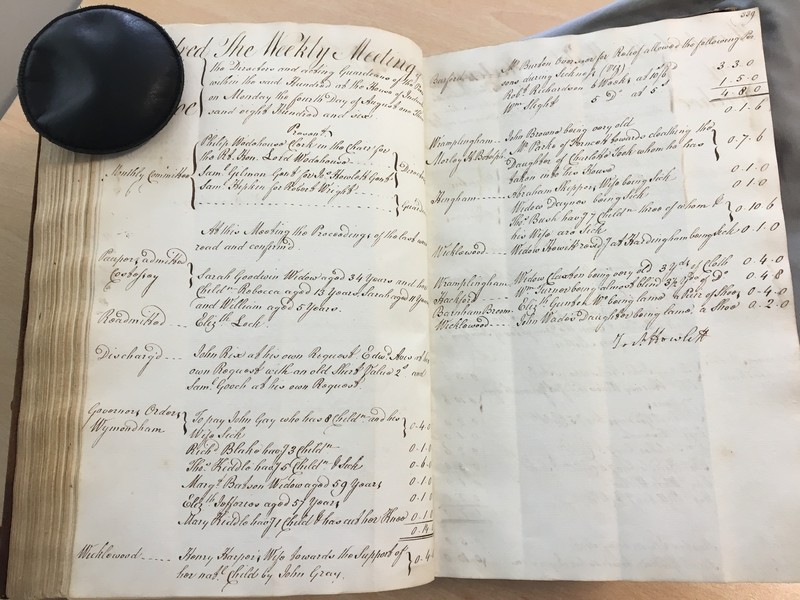 The Weekly Meeting of
the Directors and acting Guardians of the
within the said Hundred at the House of
on Monday the Fourth Day of August one
sand eight Hundred and six
Present
Philip Wodehouse Clerk in the Chair for
the Rt. Hon. Lord Wodehouse
Monthly Committee Saml. Gilman Gent for Jno. Hewlett Gent
Saml. Hipkin for Robert Wright
At this Meeting the Proceedings of the last were
read and confirmed
Paupers admitted
Costessey Sarah Goodwin Widow aged 34 Years and her
Childn. Rebecca aged 13 Years, Sarah aged 11 Years
and William aged 5 Years.
Readmitted Elizth. Lock
Dischargd John Rix at his own Request Edwd. Aves at his
own Request with an old Shirt Value 2s and
Saml. Gooch at his own Request
Governors Orders
Wymondham To pay John Gay who has 8 Childn. and his
Wife Sick 0-4-
Richd. Blake has 3 Childn. 0-1-
Thos. Kiddle has 5 Childn. & Sick 0-6-
Margt. Batson Widow aged 59 Years 0-1-0
Elizth. Jefferies aged 57 Years 0-1-0
Mary Kiddle has 1 Child & has cut her Knee 0-1-0
0-14-
Wicklewood Henry Harpers Wife towards the Support of
her natl. Child by John Gray. 0-4
339
Mr. Burton Overseer for Relief allowed the following Per
sons during Sickness (Viz)
Robt. Richardson 6 Weeks at 10/6 3 3 0
Wm. Slight 5 Do. at 5s 1-5-0
4-8-0
Wramplingham John Browne being very old 0-1-6
Morley St. Botolph Mr. Parke of towards cloathing the
Daughter of Charlotte Took whom he has
taken into his House 0-7-6
Hingham Abraham Skippers Wife being Sick 0-1-0
Widow Daynes being Sick 0-1-0
Thos. Bush has 7 Childn. three of whom &
his Wife are Sick 0-10-6
Wicklewood Widow Howitt resid. at Hardingham being Sick 0-1-0
Wramplingham Widow Claxton being very old 3 yds. of Cloth 0-4-0
Hackford Wm. Turner being almost blind 3½ yds. of Do. 0-4-8
Barnham Broom Elizth. Gunton Wm. being lame a Pair of Shoes 0-4-0
Wicklewood John Wades Daughter being lame a Shoe 0-2-0